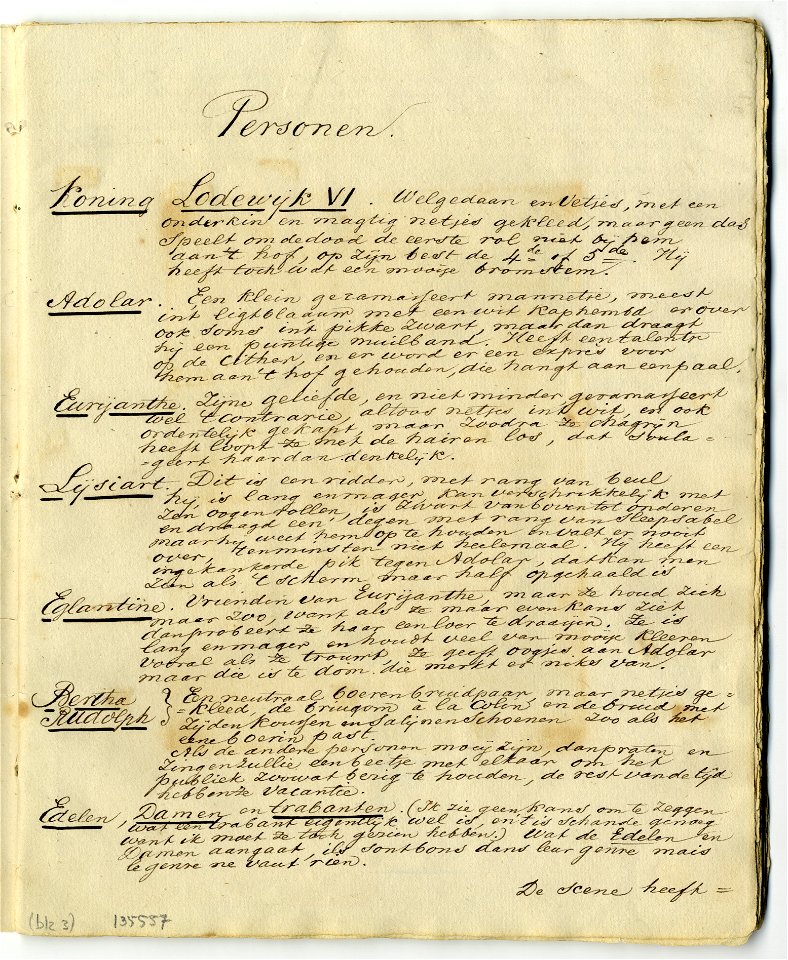 Personen.
Koning Lodewijk VI. Welgedaan en vetjes, met een
onderkin en magtig netjes gekleed, maar geen das
Speelt om de dood de eerste rol niet bij hem
aan't hof, op zijn best de 4de of 5de. Hij
heeft toch wat een mooije bromstem.
Adolar. Een klein geramasseert mannetje, meest
int ligtblaauw met een wit kaphemd er over
ook soms in't pikke zwart, maar dan draagt
hij een puntige muilband. Heeft een talent
op de Cither, en er word er een expres voor
hem aan't hof gehouden, die hangt aan een paal.
Eurijanthe. Zijne geliefde, en niet minder geramasseert
wel 't contrarie, altoos netjes int wit, en ook
ordentelijk gekapt, maar zoodra ze chagrijn
heeft loopt ze met de hairen los, dat soula=
=geert haar dan denkelijk.
Lijsiart. Dit is een ridder, met rang van beul
hij is lang en mager, kan verschrikkelijk met
zijn oogen rollen, is zwart van boven tot onderen
en draagd een degen met rang van Sleepsabel
maar hij weet hem op te houden en valt er nooit
over, tenminsten niet heelemaal. Hij heeft een
ingekankerde pik tegen Adolar, dat kan men
zien als 't scherm maar half opgehaald is
Eglantine. Vriendin van Eurijanthe, maar ze houd zich
maar zoo, want als ze maar even kans ziet
dan probeert ze haar een loer te draaijen. Ze is
lang en mager en houdt veel van mooije kleeren
vooral als ze trouwt. Ze geeft oogjes aan Adolar
maar die is te dom, die merkt er niks van.
Bertha
Rudolph } Een neutraal boerenbruidpaar, maar netjes ge=
=kleed, de bruigom à la Colin en de bruid met
zijden kousen en satijnen schoenen zoo als het
eene boerin past.
Als de andere personen mooij zijn, dan praten en
zingen zullie een beetje met elkaar om het
publiek zoowat bezig te houden, de rest van de tijd
hebben ze vacantie.
Edelen, Damen en trabanten. (Ik zie geen kans om te zeggen
wat een trabant eigentlijk wel is, en 't is schande genoeg
want ik moet ze toch gezien hebben.) Wat de Edelen en
Damen aangaat ils sont bons dans leur genre mais
le genre ne vaut rien.
De scene heeft =
(blz 3) 135557